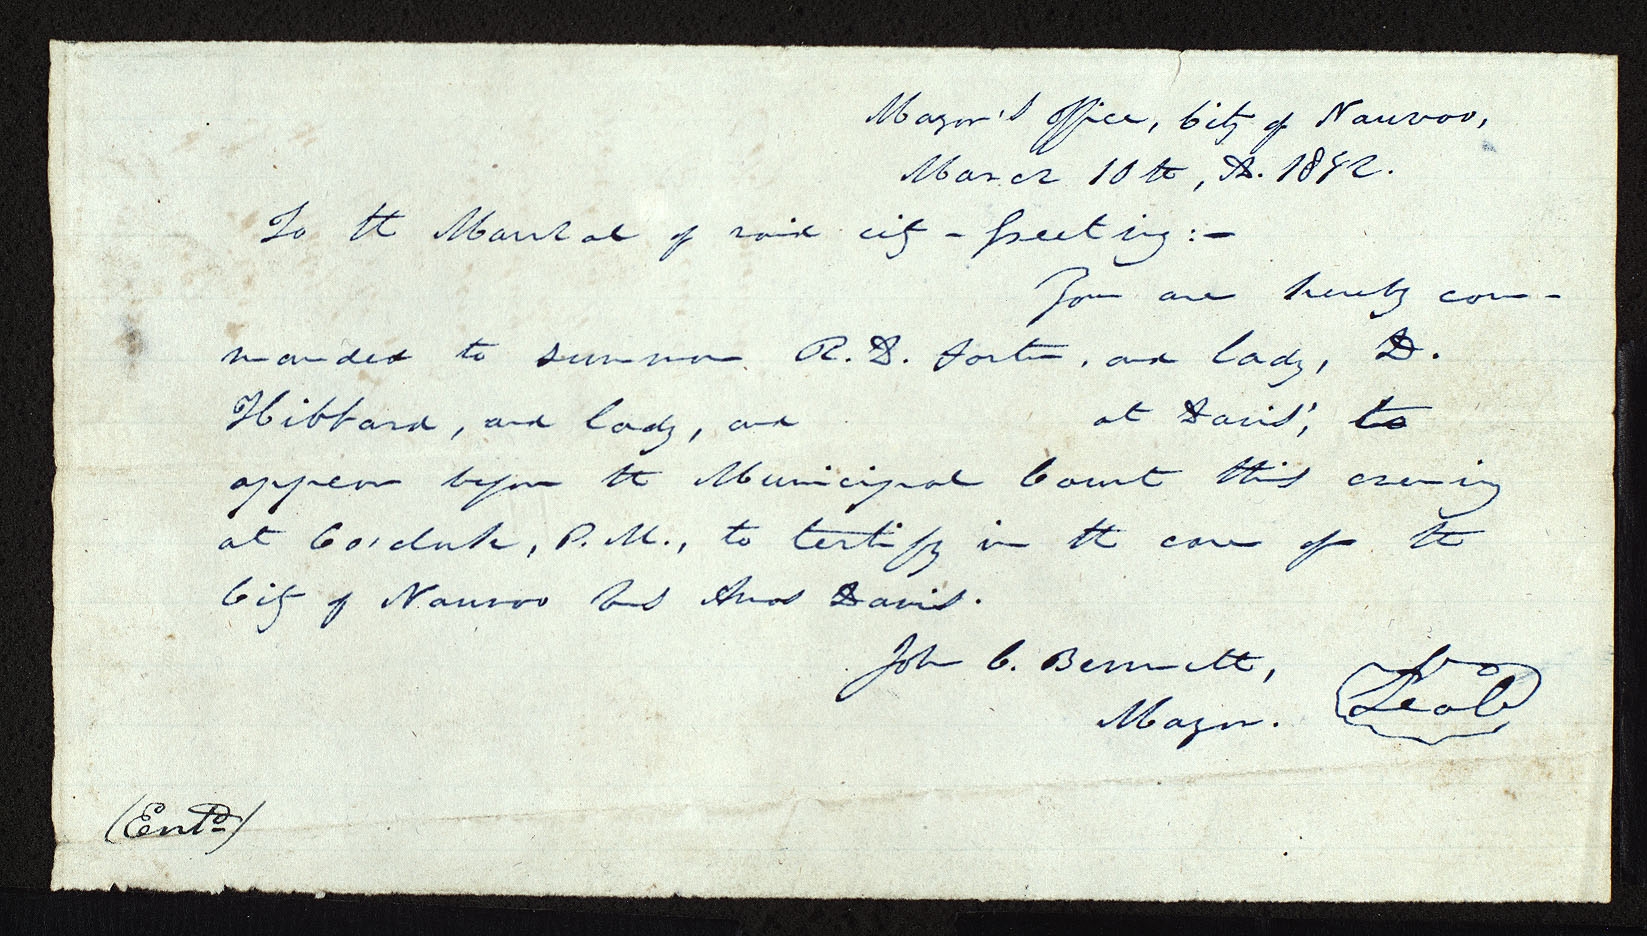 Mayor's Office, City of Nauvoo,
March 10th, A. 1842.
To the Marshal of said city - Greeting:-
You are hereby com-
manded to summon R. D. Foster, and lady, D.
Hibbard, and lady, and at Davis', to
appear before the Municipal Court this evening
at 6 o'clock, P.M., to testify in the case of the
City of Nauvoo vs Amos Davis.
John C. Bennett,
Mayor. Seal
(Entd)